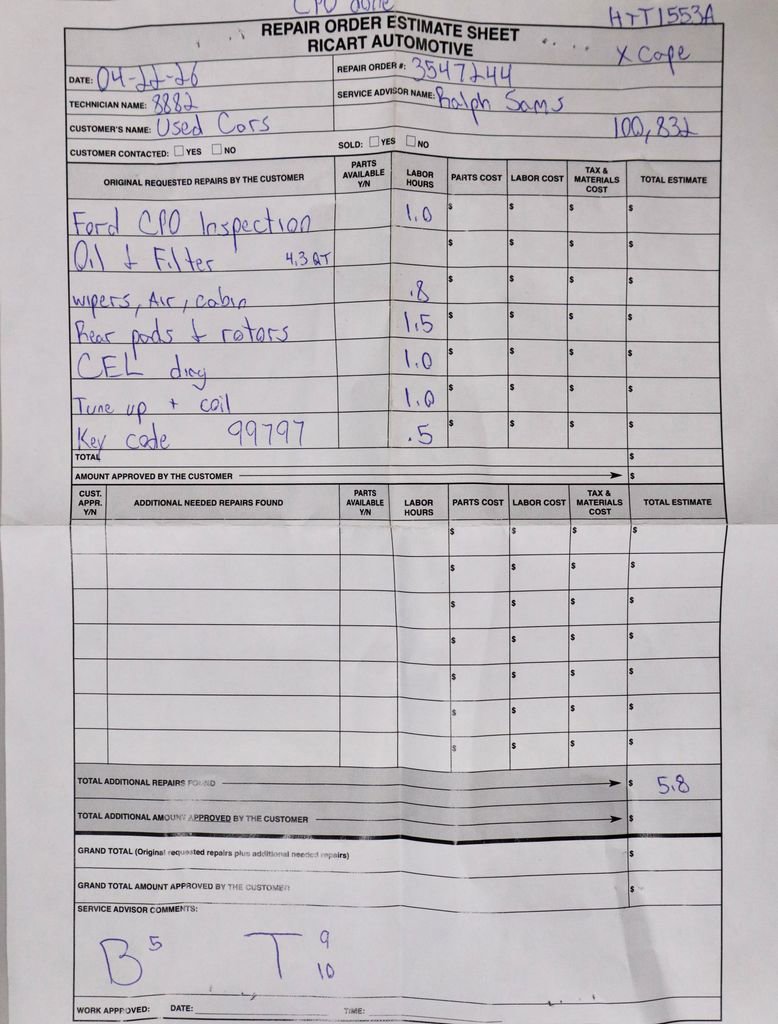 CPO done
HTT1553A
REPAIR ORDER ESTIMATE SHEET
RICART AUTOMOTIVE
X Cape
DATE: 04-22-26
REPAIR ORDER #: 3547244
TECHNICIAN NAME: 8882
SERVICE ADVISOR NAME: Ralph Sams
CUSTOMER'S NAME: Used Cars
100,832
CUSTOMER CONTACTED: ☐ YES ☐ NO SOLD: ☐ YES ☐ NO
ORIGINAL REQUESTED REPAIRS BY THE CUSTOMER PARTS AVAILABLE Y/N LABOR HOURS PARTS COST LABOR COST TAX & MATERIALS COST TOTAL ESTIMATE
Ford CPO Inspection 1.0 $ $ $ $
Oil + Filter 4.3 QT $ $ $ $
wipers, Air, cabin .8 $ $ $ $
Rear pads + rotors 1.5 $ $ $ $
CEL diag 1.0 $ $ $ $
Tune up + coil 1.0 $ $ $ $
Key code 99797 .5 $ $ $ $
TOTAL $
AMOUNT APPROVED BY THE CUSTOMER $
CUST. APPR. Y/N ADDITIONAL NEEDED REPAIRS FOUND PARTS AVAILABLE Y/N LABOR HOURS PARTS COST LABOR COST TAX & MATERIALS COST TOTAL ESTIMATE
$ $ $ $
$ $ $ $
$ $ $ $
$ $ $ $
$ $ $ $
$ $ $ $
$ $ $ $
TOTAL ADDITIONAL REPAIRS FOUND $ 5.8
TOTAL ADDITIONAL AMOUNT APPROVED BY THE CUSTOMER $
GRAND TOTAL (Original requested repairs plus additional needed repairs) $
GRAND TOTAL AMOUNT APPROVED BY THE CUSTOMER $
SERVICE ADVISOR COMMENTS:
B 5 T 9
10
WORK APPROVED: DATE: TIME: